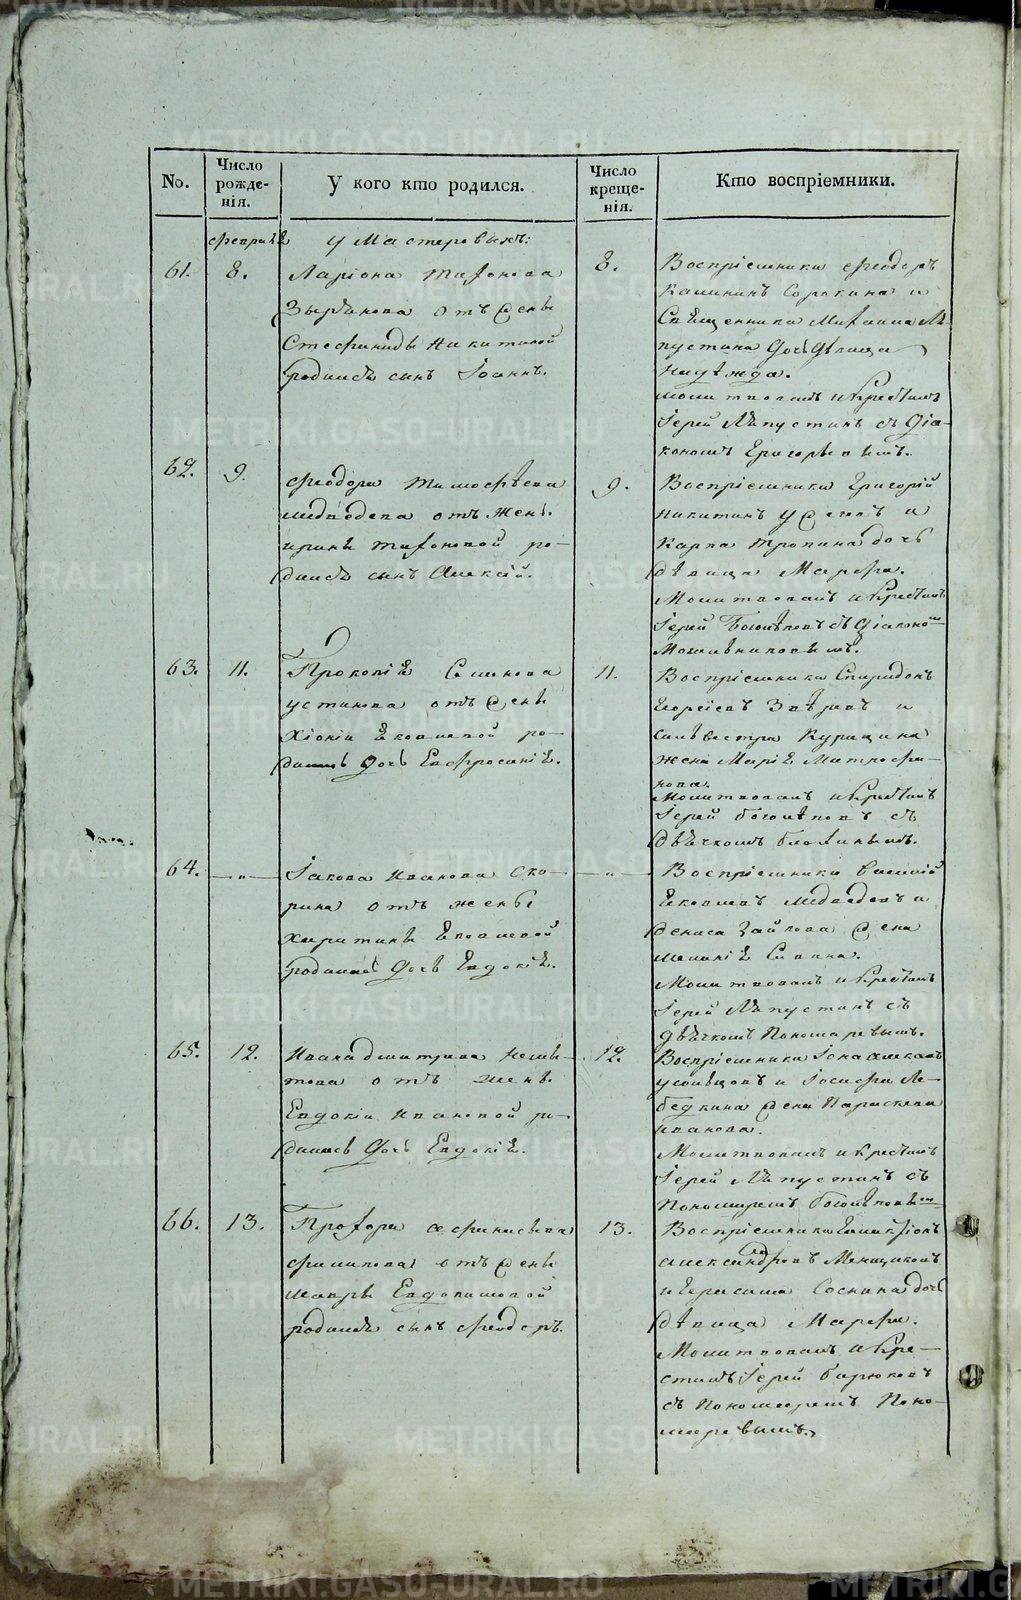 No.
Число рожде-
нія.
У кого кто родился.
Число креще-
нія.
Кто воспріемники.
февраля
у Мастеровыхъ:
61.
8.
Ларіона Тихонова
Зырянова отъ жены
Стефаниды Никитиной
родился сынъ Іоаннъ.
8.
Воспріемники Феодоръ
Калининъ Сорокина и
Священника Михаила Ля
пустина дочь девица
Надежда.
молитвовалъ и крестилъ
Іерей Ляпустинъ съ діа-
кономъ Григорьевымъ.
62.
9.
Феодора Тимофѣева
Медведева отъ жены
Ирины Тихоновой ро-
дился сынъ Алексій.
9.
Воспріемники Григорій
Никитинъ и
Карпа Тропина дочь
дѣвица Марфа.
Молитвовалъ и крестилъ
Іерей Боголѣповъ съ діакономъ
63.
11.
Прокопія Семенова
Устинова отъ жены
Хіоніи Яковлевой ро-
дилась дочь Евфросинія.
11.
Воспріемники Спиридонъ
Георгіевъ Звѣревъ и
Сильвестра Курицина
жена Марія Митрофа-
нова.
Молитвовалъ и крестилъ
Іерей Боголѣповъ съ
дьячкомъ
64.
— „ —
Іакова Иванова Ско-
рина отъ жены
Харитины Яковлевой
родилась дочь Евдокія.
— „ —
Воспріемники Василій
Яковлевъ Медведевъ и
Дениса Зайкова жена
Меланія Саввина.
Молитвовалъ и крестилъ
Іерей Ляпустинъ съ
дьячкомъ Пономаревымъ.
65.
12.
Ивана Дмитріева
отъ жены
Евдокіи Ивановой ро-
дилась дочь Евдокія.
12.
Воспріемники
и Іосифа Ле-
бедкина жена Параскева
Иванова.
Молитвовалъ и крестилъ
Іерей Ляпустинъ съ
Пономаремъ Боголѣповымъ
66.
13.
Прохора Афанасьева
Филипова отъ жены
Мавры Евдокимовой
родился сынъ Феодоръ.
13.
Воспріемники
Александровъ Менщиковъ
и Герасима Соснина дочь
дѣвица Марфа.
Молитвовалъ и кре-
стилъ Іерей Бирюковъ
съ Пономаремъ Поно-
маревымъ.
METRIKI.GASO-URAL.RU